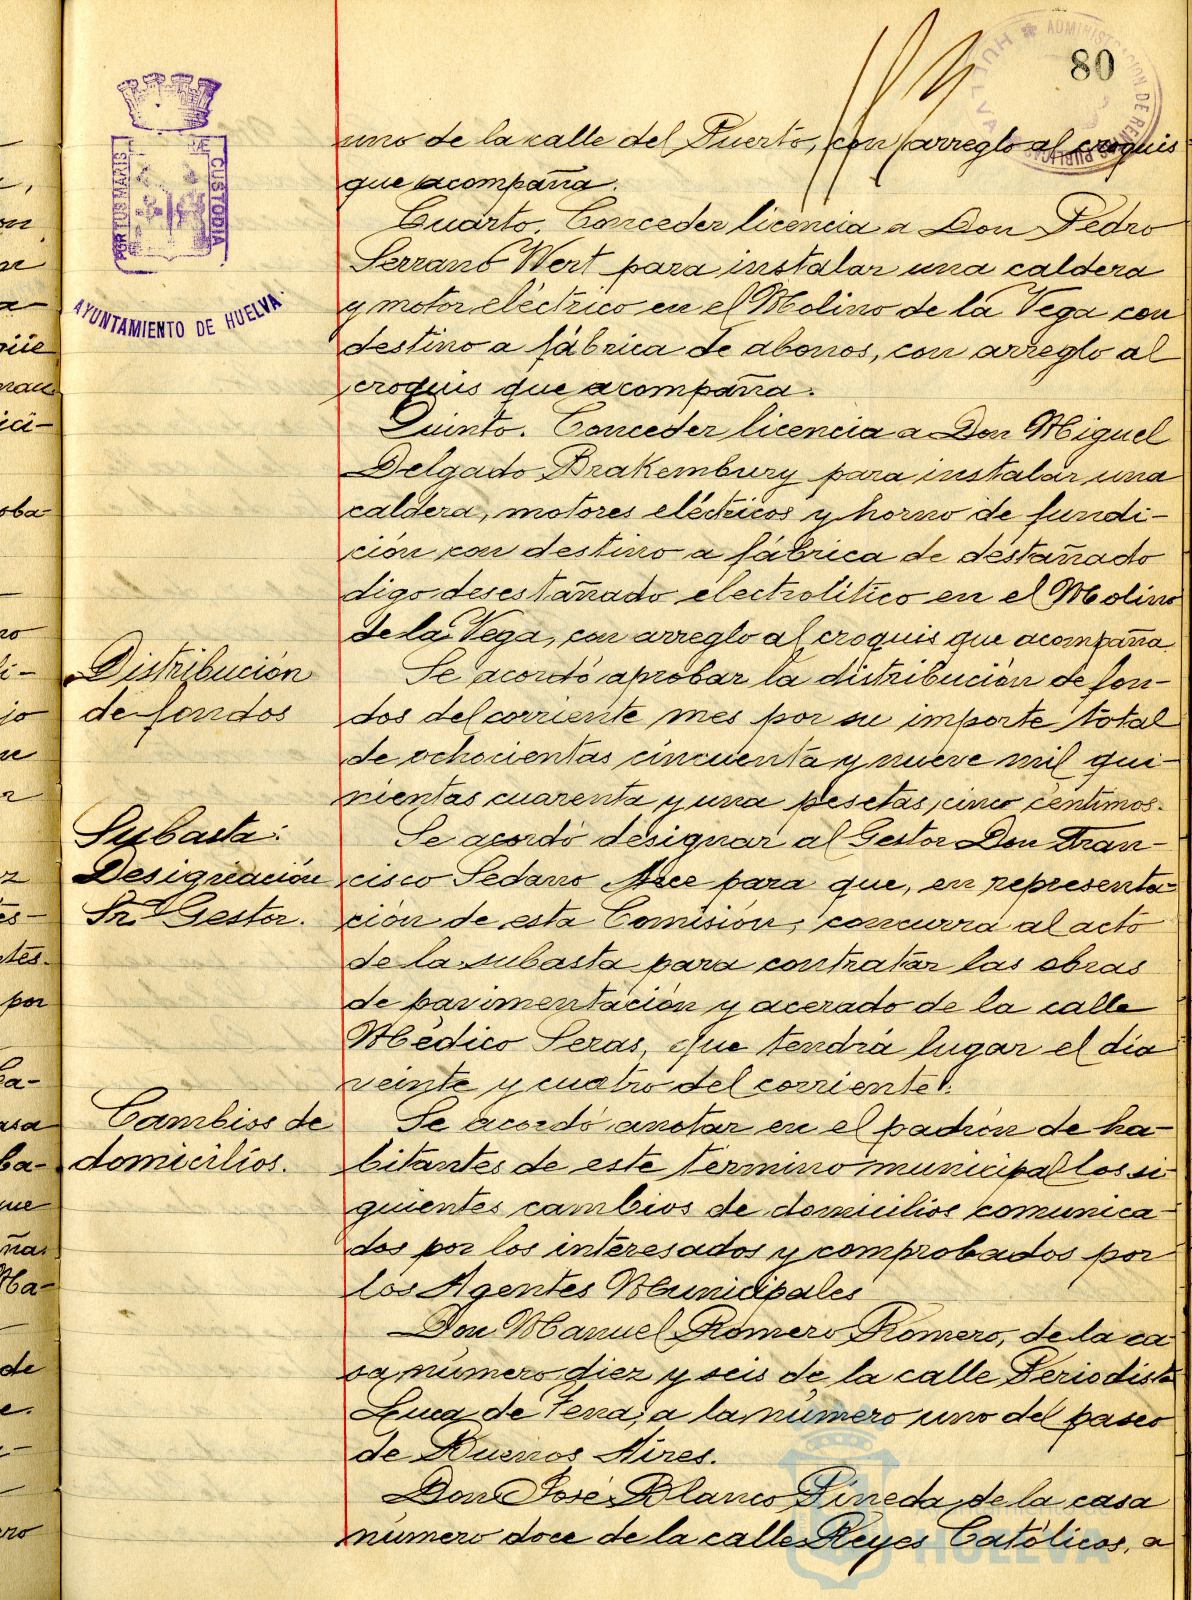 80
ADMINISTRACIÓN DE RENTAS PUBLICAS
HUELVA
PORTUS MARIS
CUSTODIA
AYUNTAMIENTO DE HUELVA
uno de la calle del Puerto, con arreglo al croquis
que acompaña.
Cuarto. Conceder licencia a Don Pedro
Serrano Wert para instalar una caldera
y motor eléctrico en el Molino de la Vega con
destino a fábrica de abonos, con arreglo al
croquis que acompaña.
Quinto. Conceder licencia a Don Miguel
Delgado Brakembury para instalar una
caldera, motores eléctricos y horno de fundi-
ción con destino a fábrica de destañado
digo desestañado electrolítico en el Molino
de la Vega, con arreglo al croquis que acompaña
Distribución
de fondos
Se acordó aprobar la distribución de fon-
dos del corriente mes por su importe total
de ochocientas cincuenta y nueve mil qui-
nientas cuarenta y una pesetas, cinco centimos.
Subasta:
Designación
Sr. Gestor.
Se acordó designar al Gestor Don Fran-
cisco Sedano Arce para que, en representa-
ción de esta Comisión, concurra al acto
de la subasta para contratar las obras
de pavimentación y acerado de la calle
Médico Seras, que tendrá lugar el día
veinte y cuatro del corriente.
Cambios de
domicilios.
Se acordó anotar en el padrón de ha-
bitantes de este término municipal los si-
guientes cambios de domicilios comunica-
dos por los interesados y comprobados por
los Agentes Municipales
Don Manuel Romero Romero, de la ca
sa número diez y seis de la calle Periodista
Luca de Tena, a la número uno del paseo
de Buenos Aires.
Don José Blanco Pineda, de la casa
número doce de la calle Reyes Católicos, a
Ayuntamiento de
HUELVA